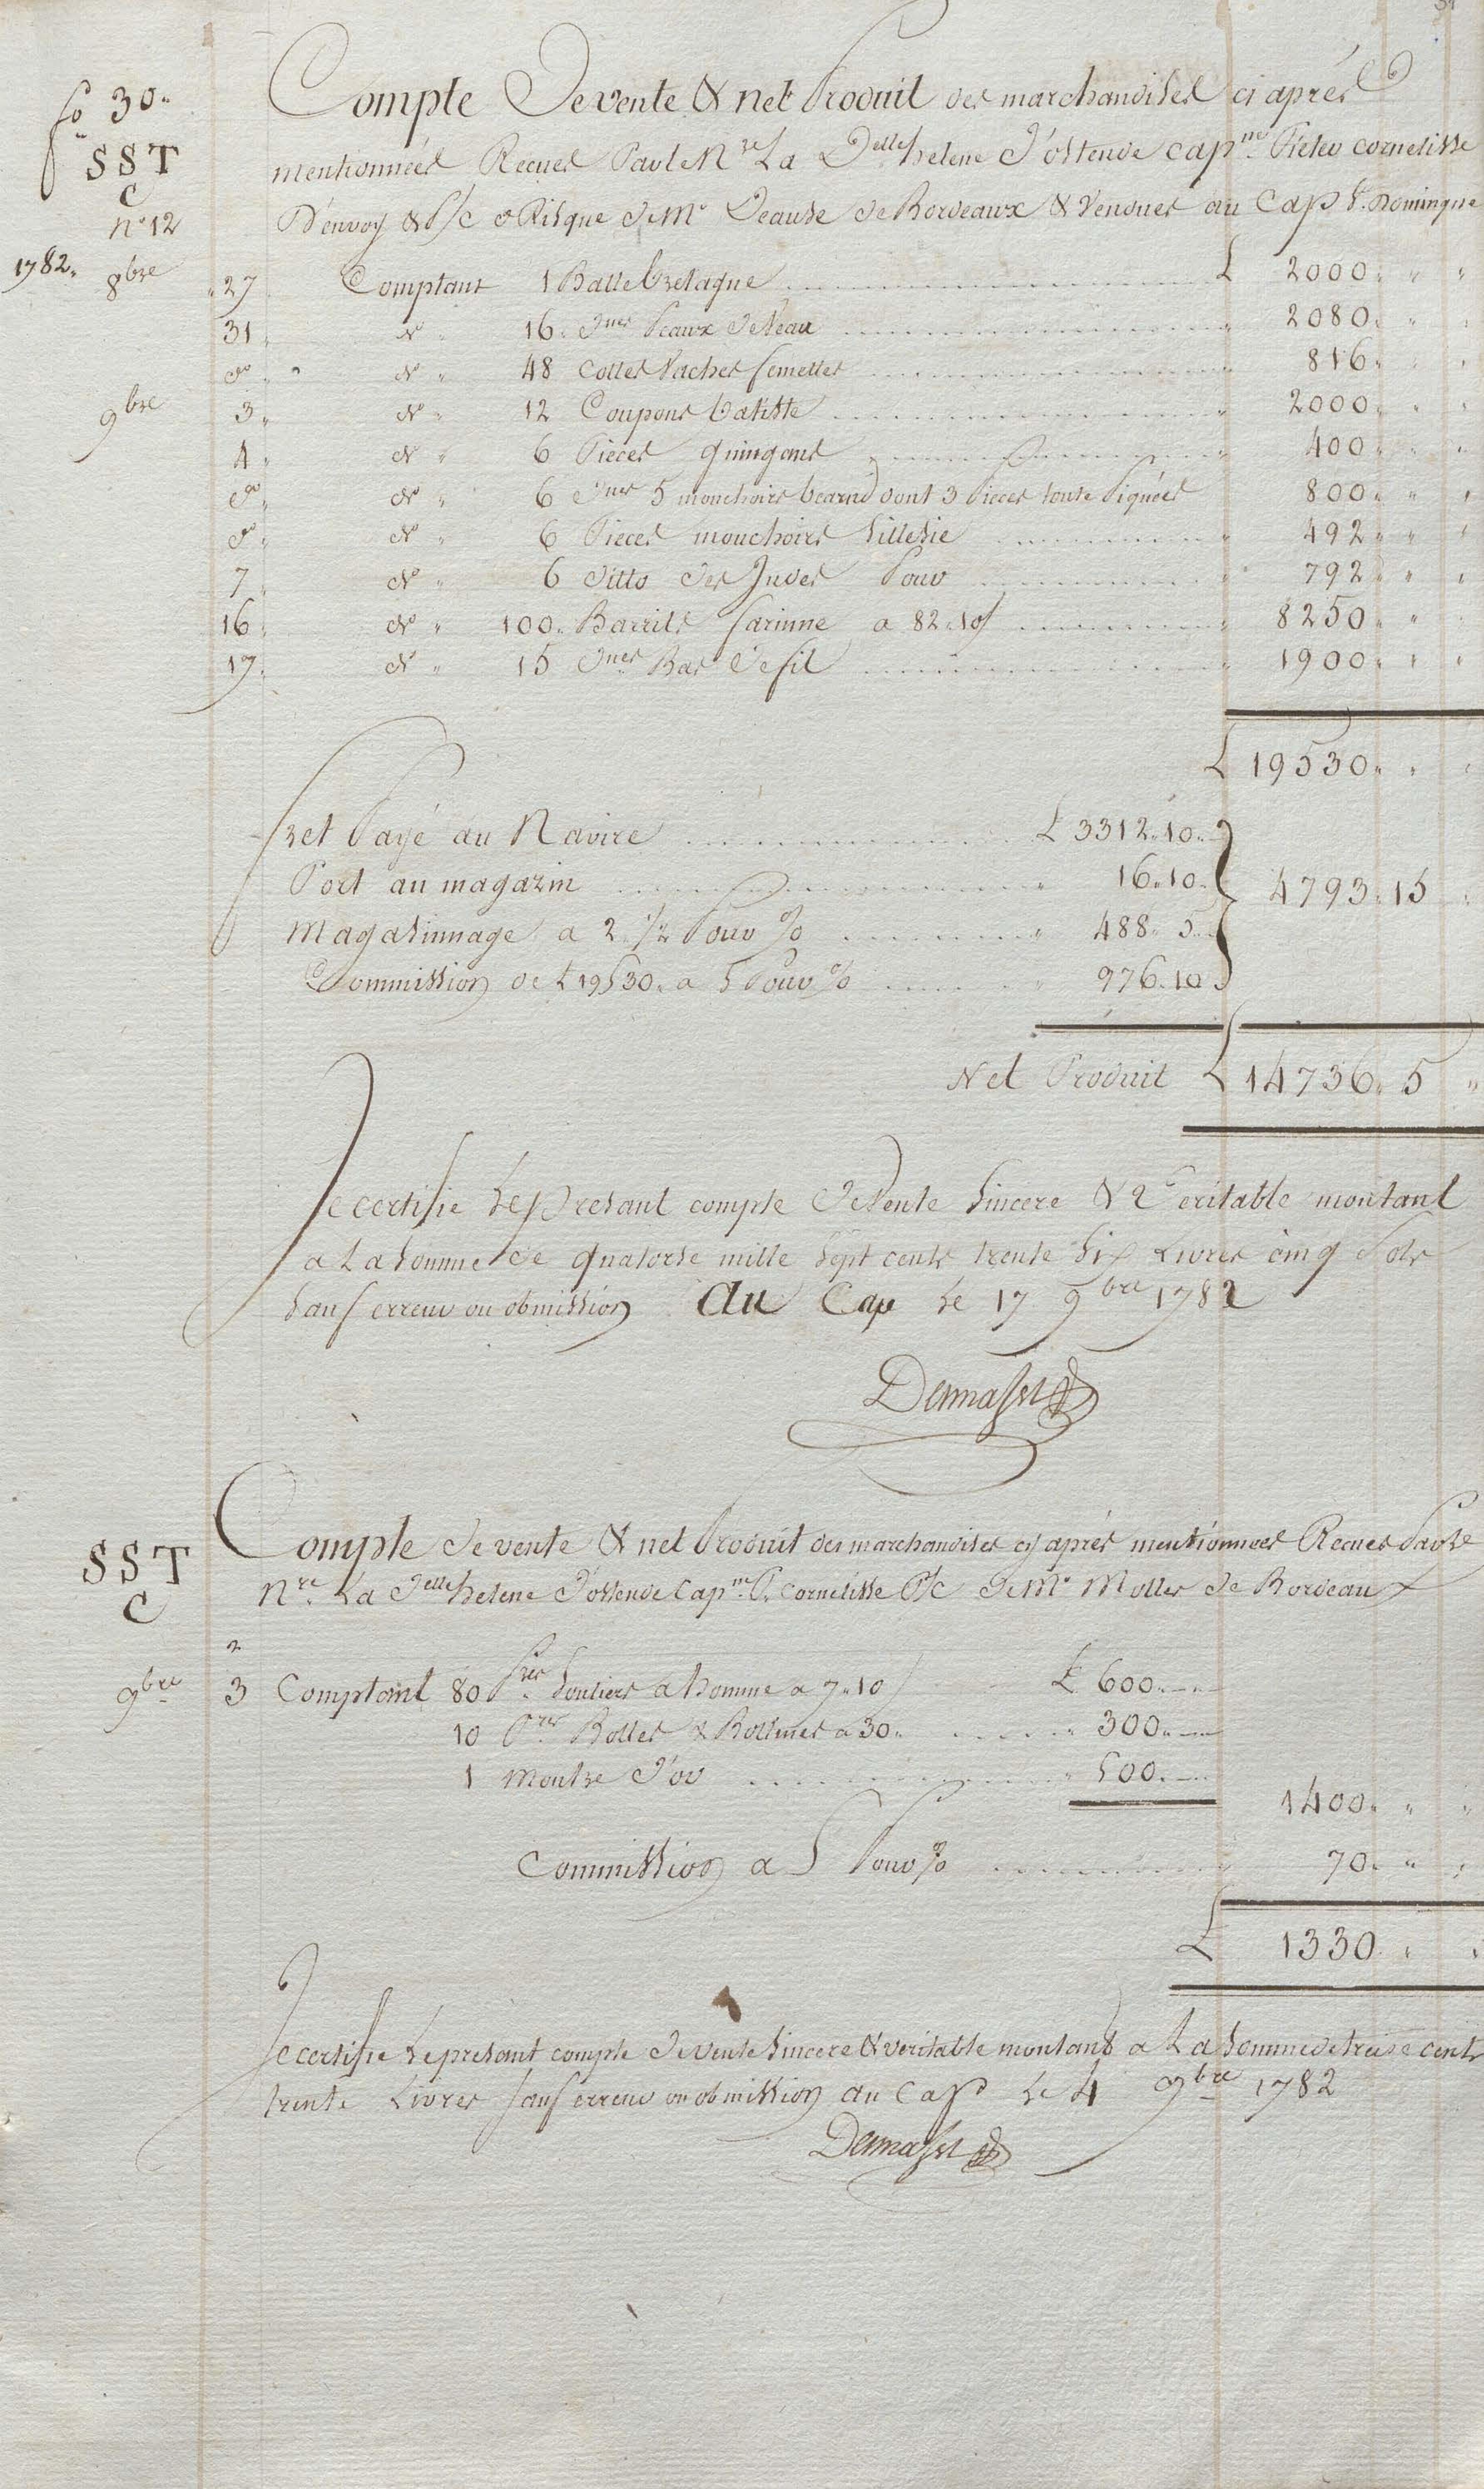 fo 30.
SST
C
n° 12
Compte De vente & net Produit des marchandises ci aprés
mentionnées Recues Par le Nre La Delle helene d'ostende capne Pieter cornelisse
D'envoy & P/c & Risque de Mr Deause de Bordeaux & Vendues au Cap St. Domingue
1782. 8bre 27 Comptant 1 Balle bretagne £ 2000. " "
31. do " 16. dnes Peaux de Veau " 2080. " "
do. do " 48 colles Vaches semelles " 816. " "
9bre 3. do " 12 Coupons batiste " 2000. " "
4. do " 6 Pieces guingans " 400. " "
do. do " 6 dnes 5 mouchoirs bearn dont 3 Pieces toute Piquées 800. " "
do. do " 6 Pieces mouchoirs Sillesie " 492. " "
7. do " 6 ditto des Indes Pour " 792. " "
16. do " 100. Barrils farinne a 82.10s " 8250. " "
17. do " 15 dnes Bas de fil " 1900. " "
£ 19530. " "
fret Payé au Navire £ 3312.10.
Port au magazin " 16.10. 4793.15
Magasinnage a 2 1/2 Pour % " 488.5.
Commission de £ 19530. a 5 Pour % " 976.10
Net Produit £ 14736. 5 "
Je certifie Le presant compte de Vente Sincere & Veritable montant
a La Somme de quatorse mille Sept cents trente Six Livres cinq Sols
Sauf erreur ou obmission Au Cap Le 17 9bre 1782
Demasset
SST
C
Compte de vente & net Produit des marchandises cy aprés mentionnees Recues Par le
Nre La Delle helene d'ostende Capne P. cornelisse P/c de Mr Molles de Bordeaux
2
9bre 3 Comptant 80 Pres Souliers a homme a 7.10s £ 600.
10 Pres Bottes & Bottines a 30. " 300.
1 Montre d'or " 500.
1400. " "
Commission a 5 Pour % " 70. " "
£ 1330. "
Je certifie Le presant compte de vente Sincere & veritable montant a La Somme de treise cents
trente Livres Sauf erreur ou obmission au Cap Le 4 9bre 1782
Demasset